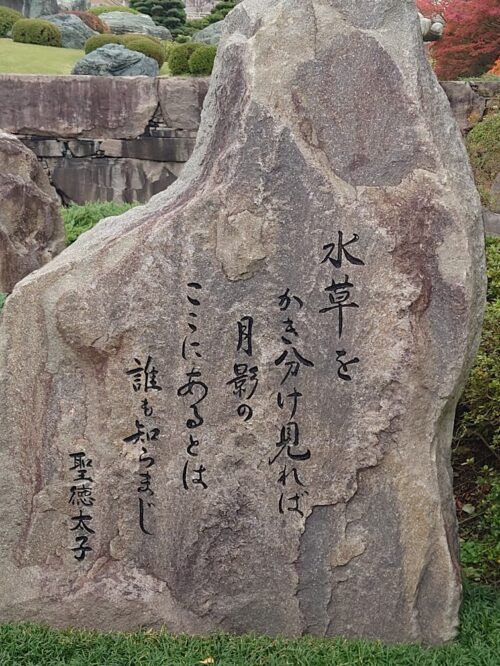 水草を
かき分け見れば
月影の
ここにあるとは
誰も知らまじ
聖徳太子